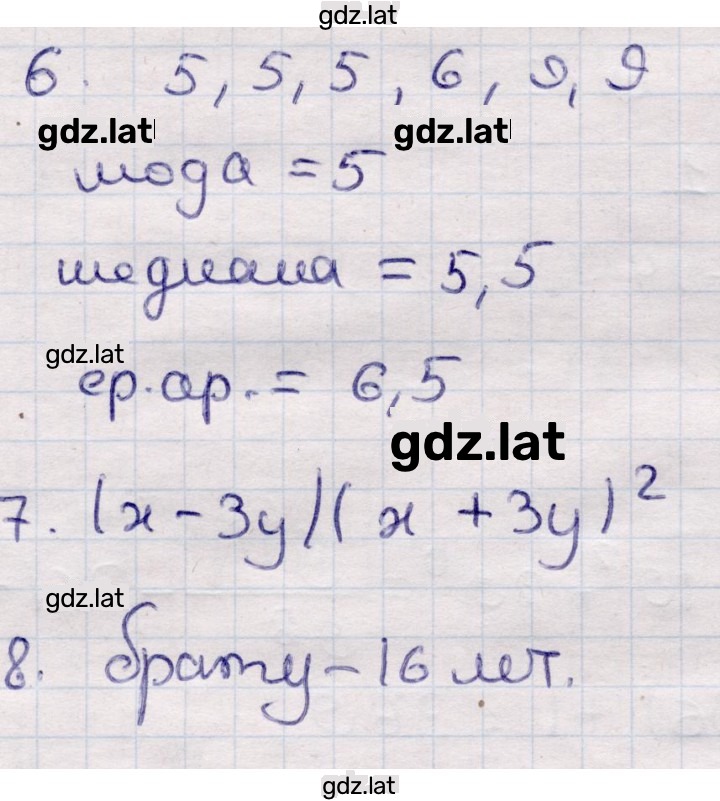 gdz.lat
6. 5, 5, 5, 6, 9, 9
gdz.lat gdz.lat
мода = 5
медиана = 5,5
gdz.lat
ср. ар. = 6,5
gdz.lat
7. (x - 3y)(x + 3y)²
gdz.lat
8. брату - 16 лет.
gdz.lat